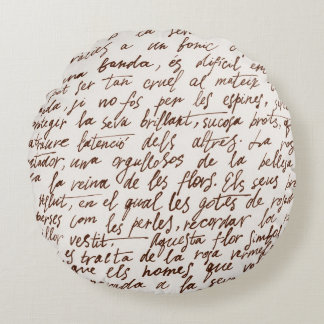 la ser
gràcies a un fong c
una banda, és difícil em
pot ser tan cruel al mateix
anda, si no fos per les espines,
rotegir la seva brillant, sucosa brots, p
atraure l'atenció dels altres. La ros
stador, una orgullosos de la bellesa
a la reina de les flors. Els seus p
vesllut, en el qual les gotes de rosad
perses com les perles, recordar la
illor vestit. Aquesta flor símbol
es tracta de la rosa vermel
que els homes que vo
a la seva